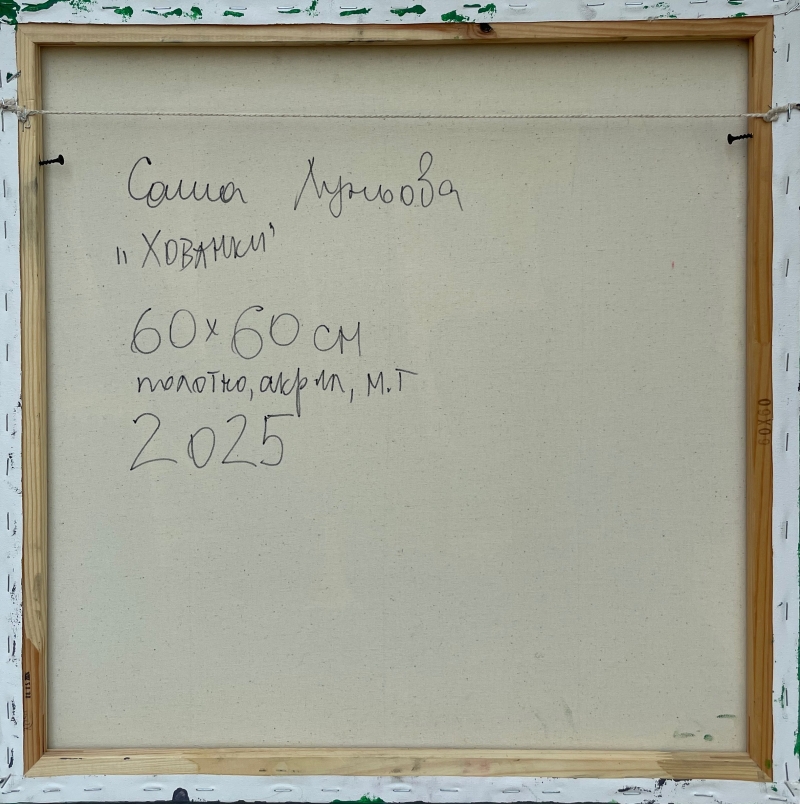 Саша Луньова
„Хованки"
60х60 см
полотно, акрил, м.г
2025
60X60